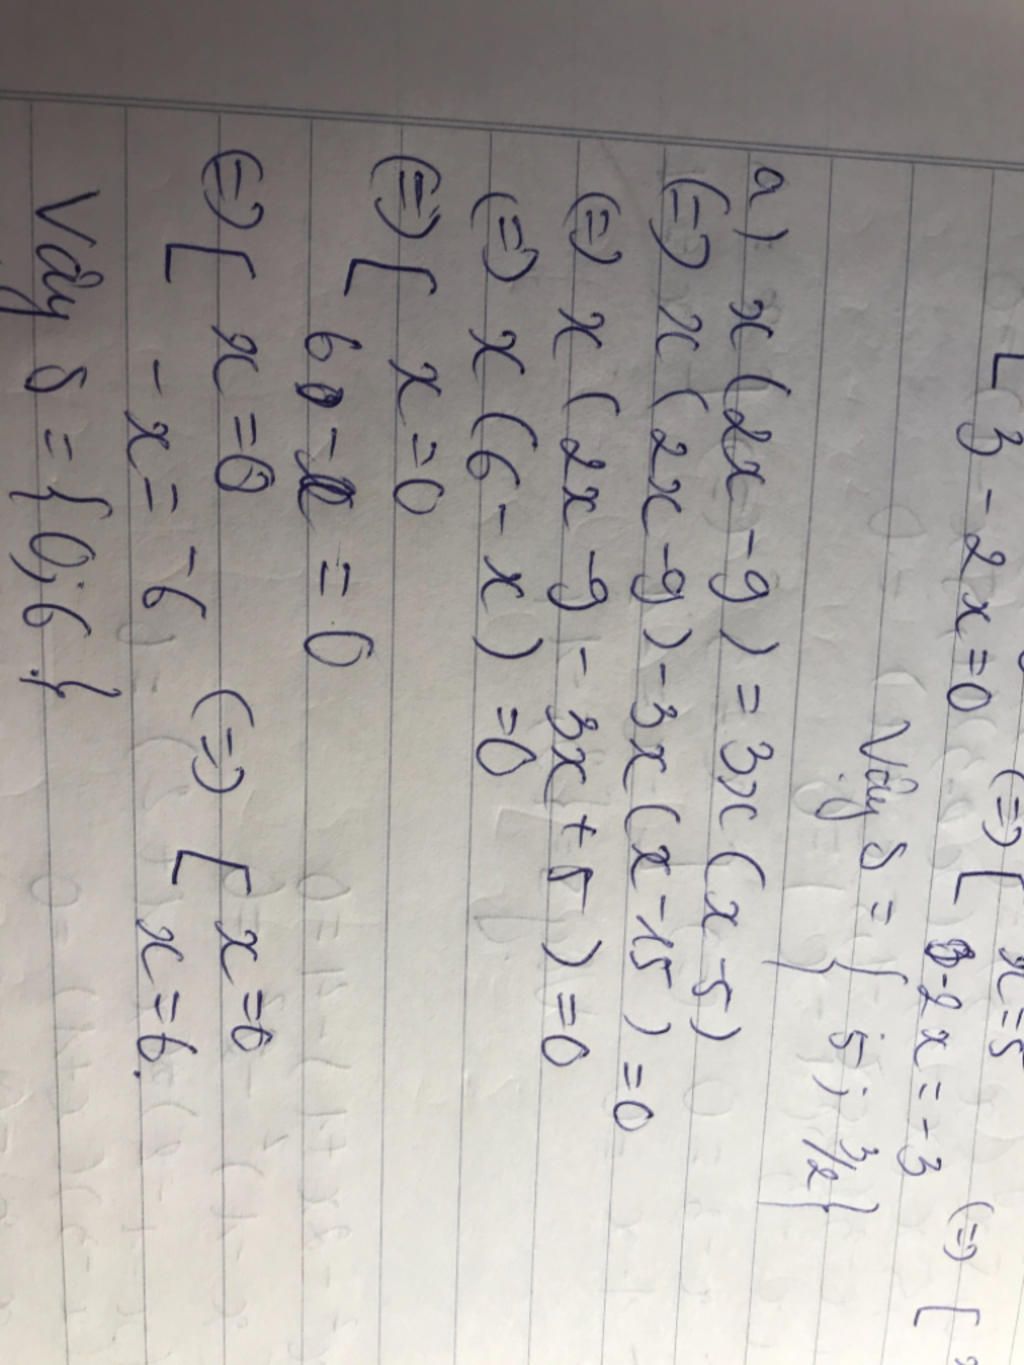 [ 3 - 2x = 0 (=) [ x = 5
-2x = -3 (=) [
Vậy S = { 5 ; 3/2 }
a) x (2x - 9) = 3x (x - 5)
(=) x (2x - 9) - 3x (x - 15) = 0
(=) x (2x - 9 - 3x + 5) = 0
(=) x (6 - x) = 0
(=) [ x = 0
6 - x = 0
(=) [ x = 0 (=) [ x = 0
- x = -6 x = 6.
Vậy S = { 0; 6 }